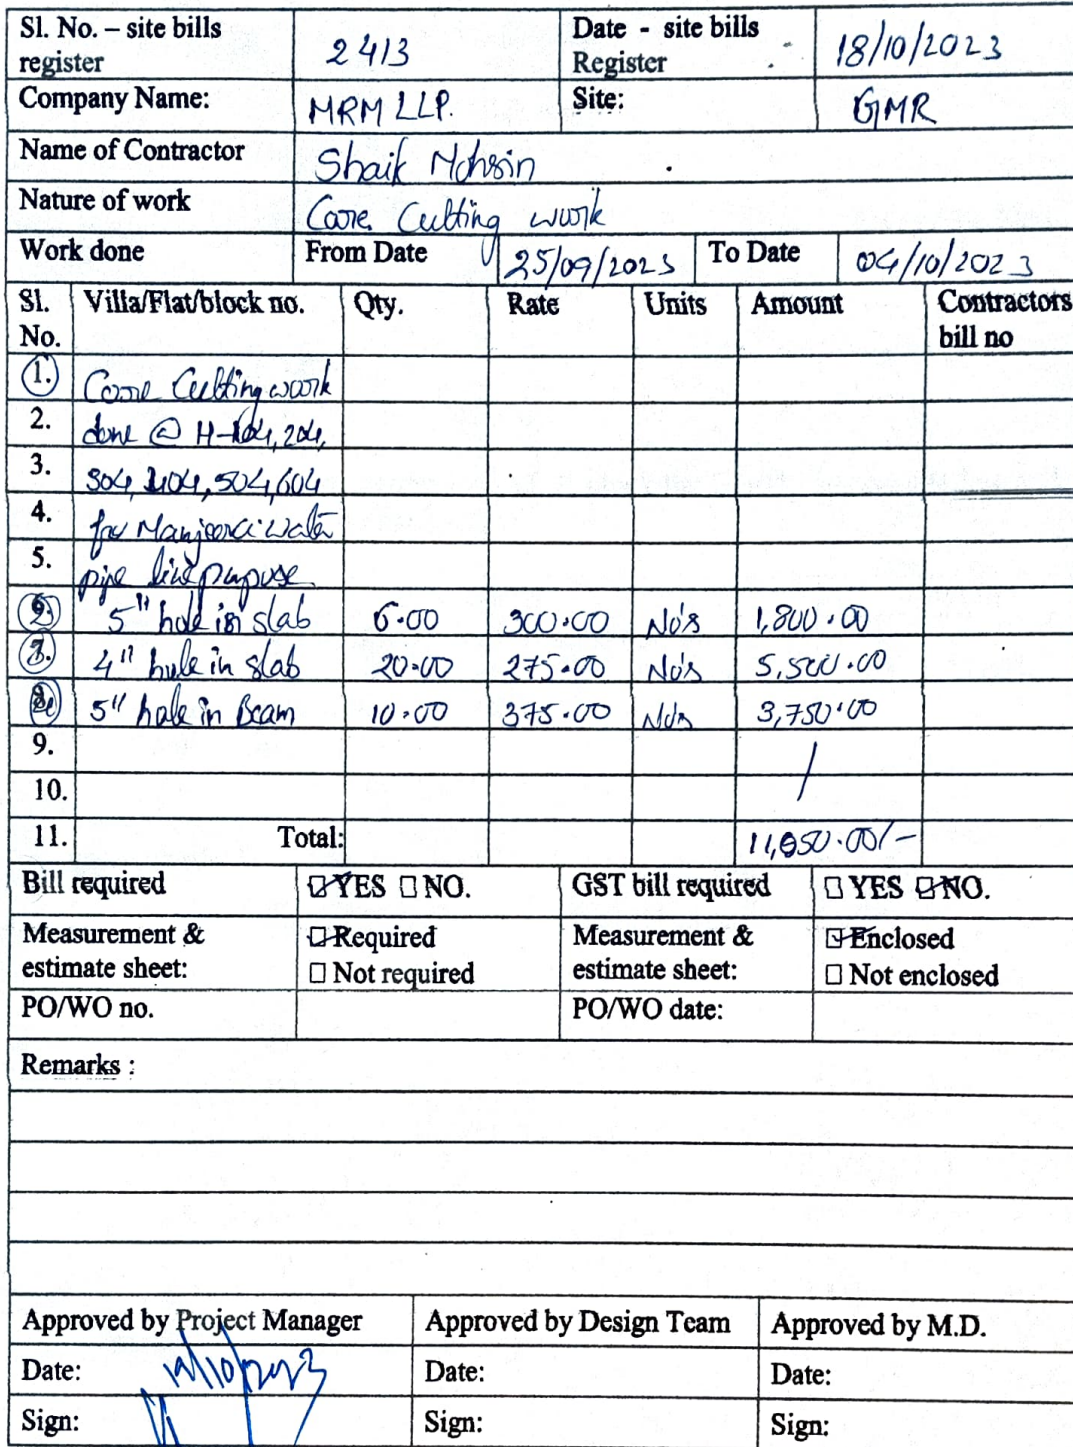 Sl. No. – site bills register 2413 Date - site bills Register 18/10/2023
Company Name: MRM LLP. Site: GMR
Name of Contractor Shaik Mohsin
Nature of work Core Cutting work
Work done From Date 25/09/2023 To Date 04/10/2023
Sl. No. Villa/Flat/block no. Qty. Rate Units Amount Contractors bill no
1. Core Cutting work
2. done @ H-104, 204,
3. 304, 404, 504, 604
4. for Manjeera water
5. pipe line purpose
6. 5" hole in slab 6.00 300.00 No's 1,800.00
7. 4" hole in slab 20.00 275.00 No's 5,500.00
8. 5" hole in Beam 10.00 375.00 No's 3,750.00
9. /
10.
11. Total: 11,050.00/-
Bill required ☑ YES ☐ NO. GST bill required ☐ YES ☑ NO.
Measurement & estimate sheet: ☑ Required ☐ Not required Measurement & estimate sheet: ☑ Enclosed ☐ Not enclosed
PO/WO no. PO/WO date:
Remarks :
Approved by Project Manager Approved by Design Team Approved by M.D.
Date: Date: Date:
Sign: Sign: Sign: